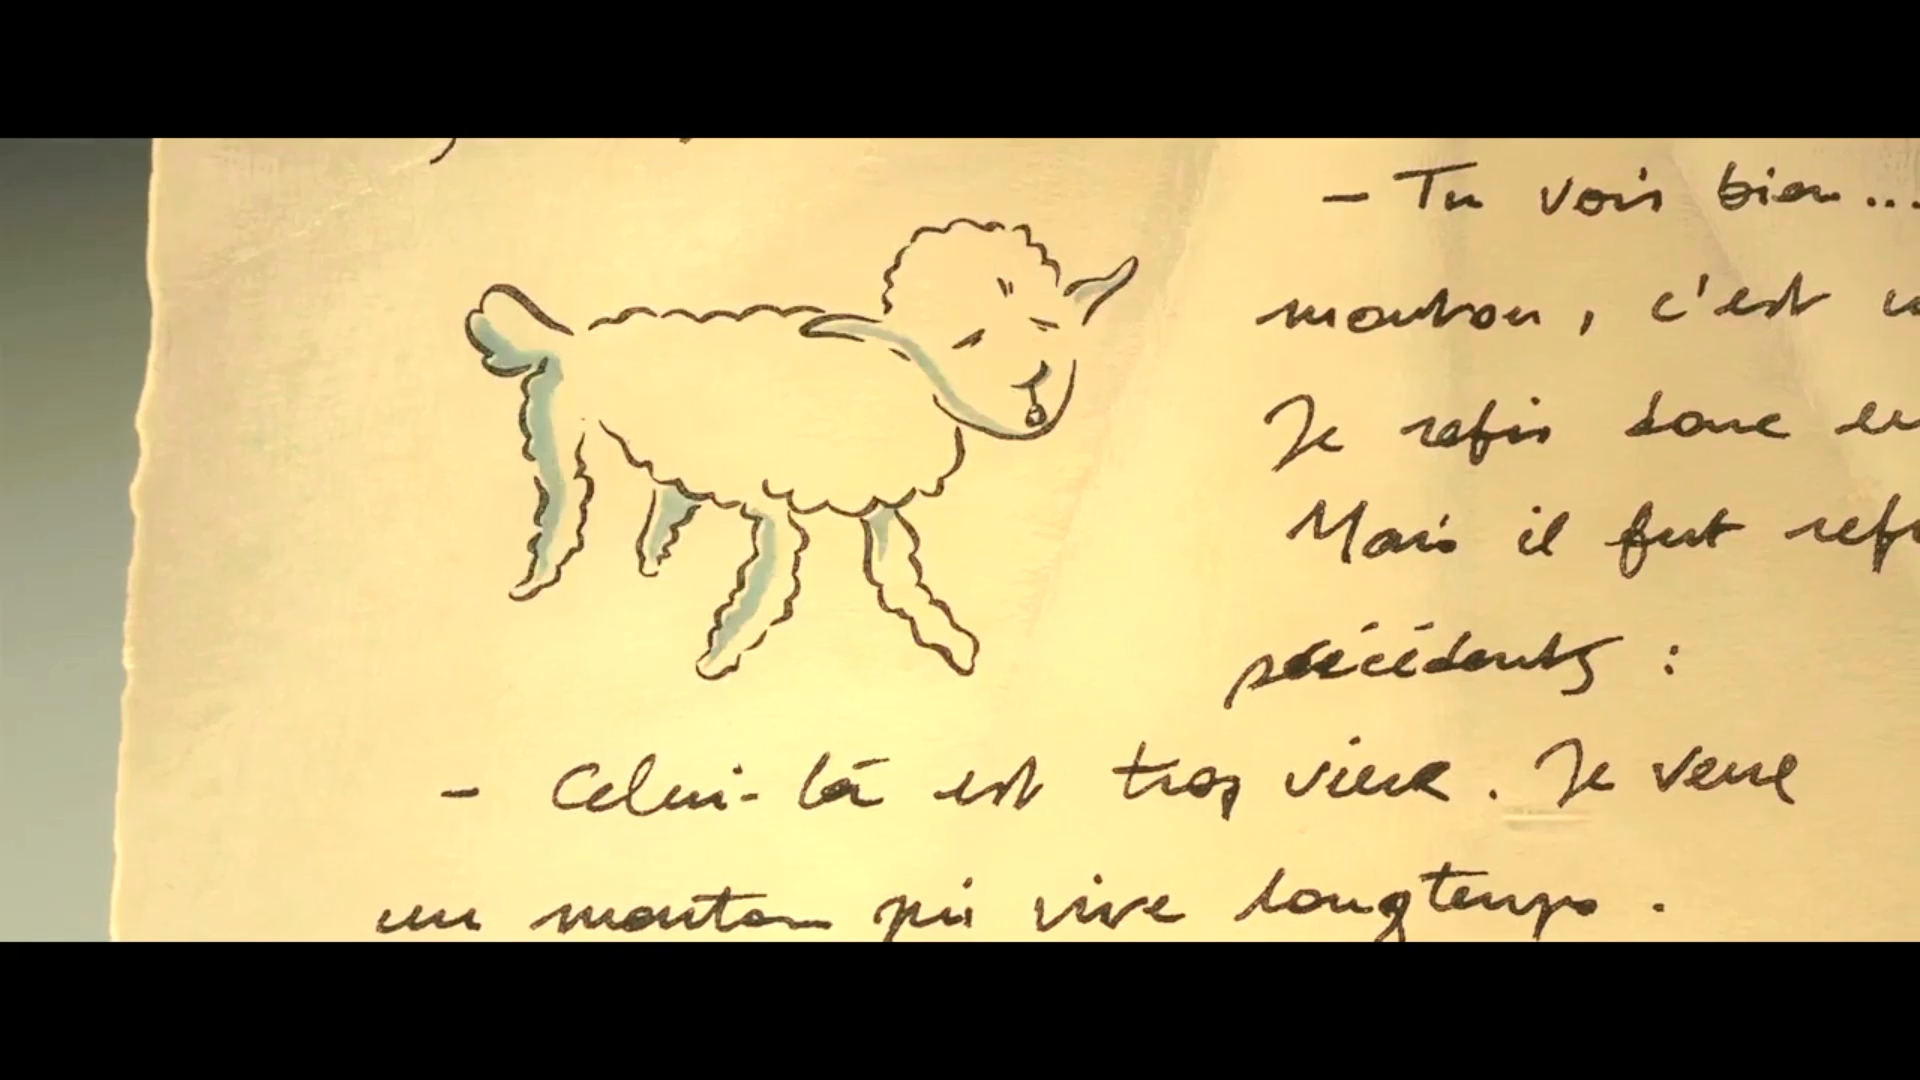 - Tu vois bien...
mouton, c'est
Je refis donc en
Mais il fut refu
précédents :
- Celui-là est trop vieux. Je veux
un mouton qui vive longtemps.